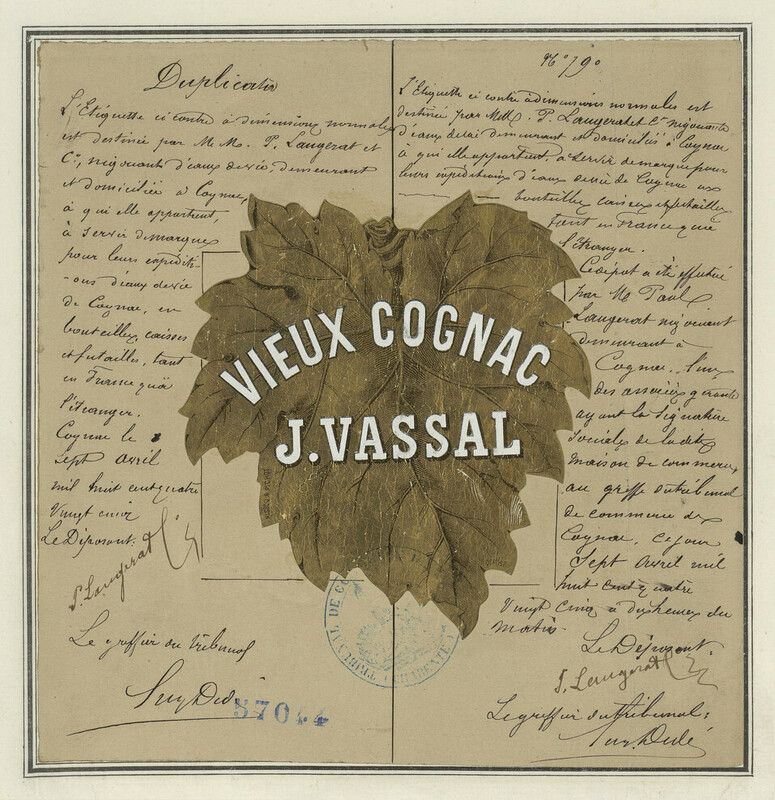 Duplicata
L'Etiquette ci contre à dimensions normales
est destinée par M. M. P. Laugerat et
Cie, négociants d'eaux de vie, demeurant
et domiciliés à Cognac,
à qui elle appartient,
à servir de marque
pour leurs expéditi-
-ons d'eaux de vie
de Cognac, en
bouteilles, caisses
et futailles, tant
en France qu'à
l'étranger.
Cognac le
sept avril
mil huit cent quatre
vingt cinq
Le Déposant.
P. Laugerat
Le greffier du tribunal
57044
No 790
L'Etiquette ci contre à dimensions normales est
destinée par MM. P. Laugerat et Cie négociants
d'eaux de vie demeurant et domiciliés à Cognac
à qui elle appartient, à servir de marque pour
leurs expéditions d'eaux de vie de Cognac en
bouteilles caisses et futailles
tant en France qu'à
l'étranger.
Ce dépot a été effectué
par M. Paul
Laugerat négociant
demeurant à
Cognac, l'un
des associés gérants
ayant la signature
sociale de la dite
maison de commerce
au greffe du tribunal
de commerce de
Cognac, ce jour
sept avril mil
huit cent quatre
vingt cinq à dix heures du
matin.
Le Déposant.
P. Laugerat
Le greffier du tribunal:
VIEUX COGNAC
J. VASSAL
TRIBUNAL DE CO
CHARENTE